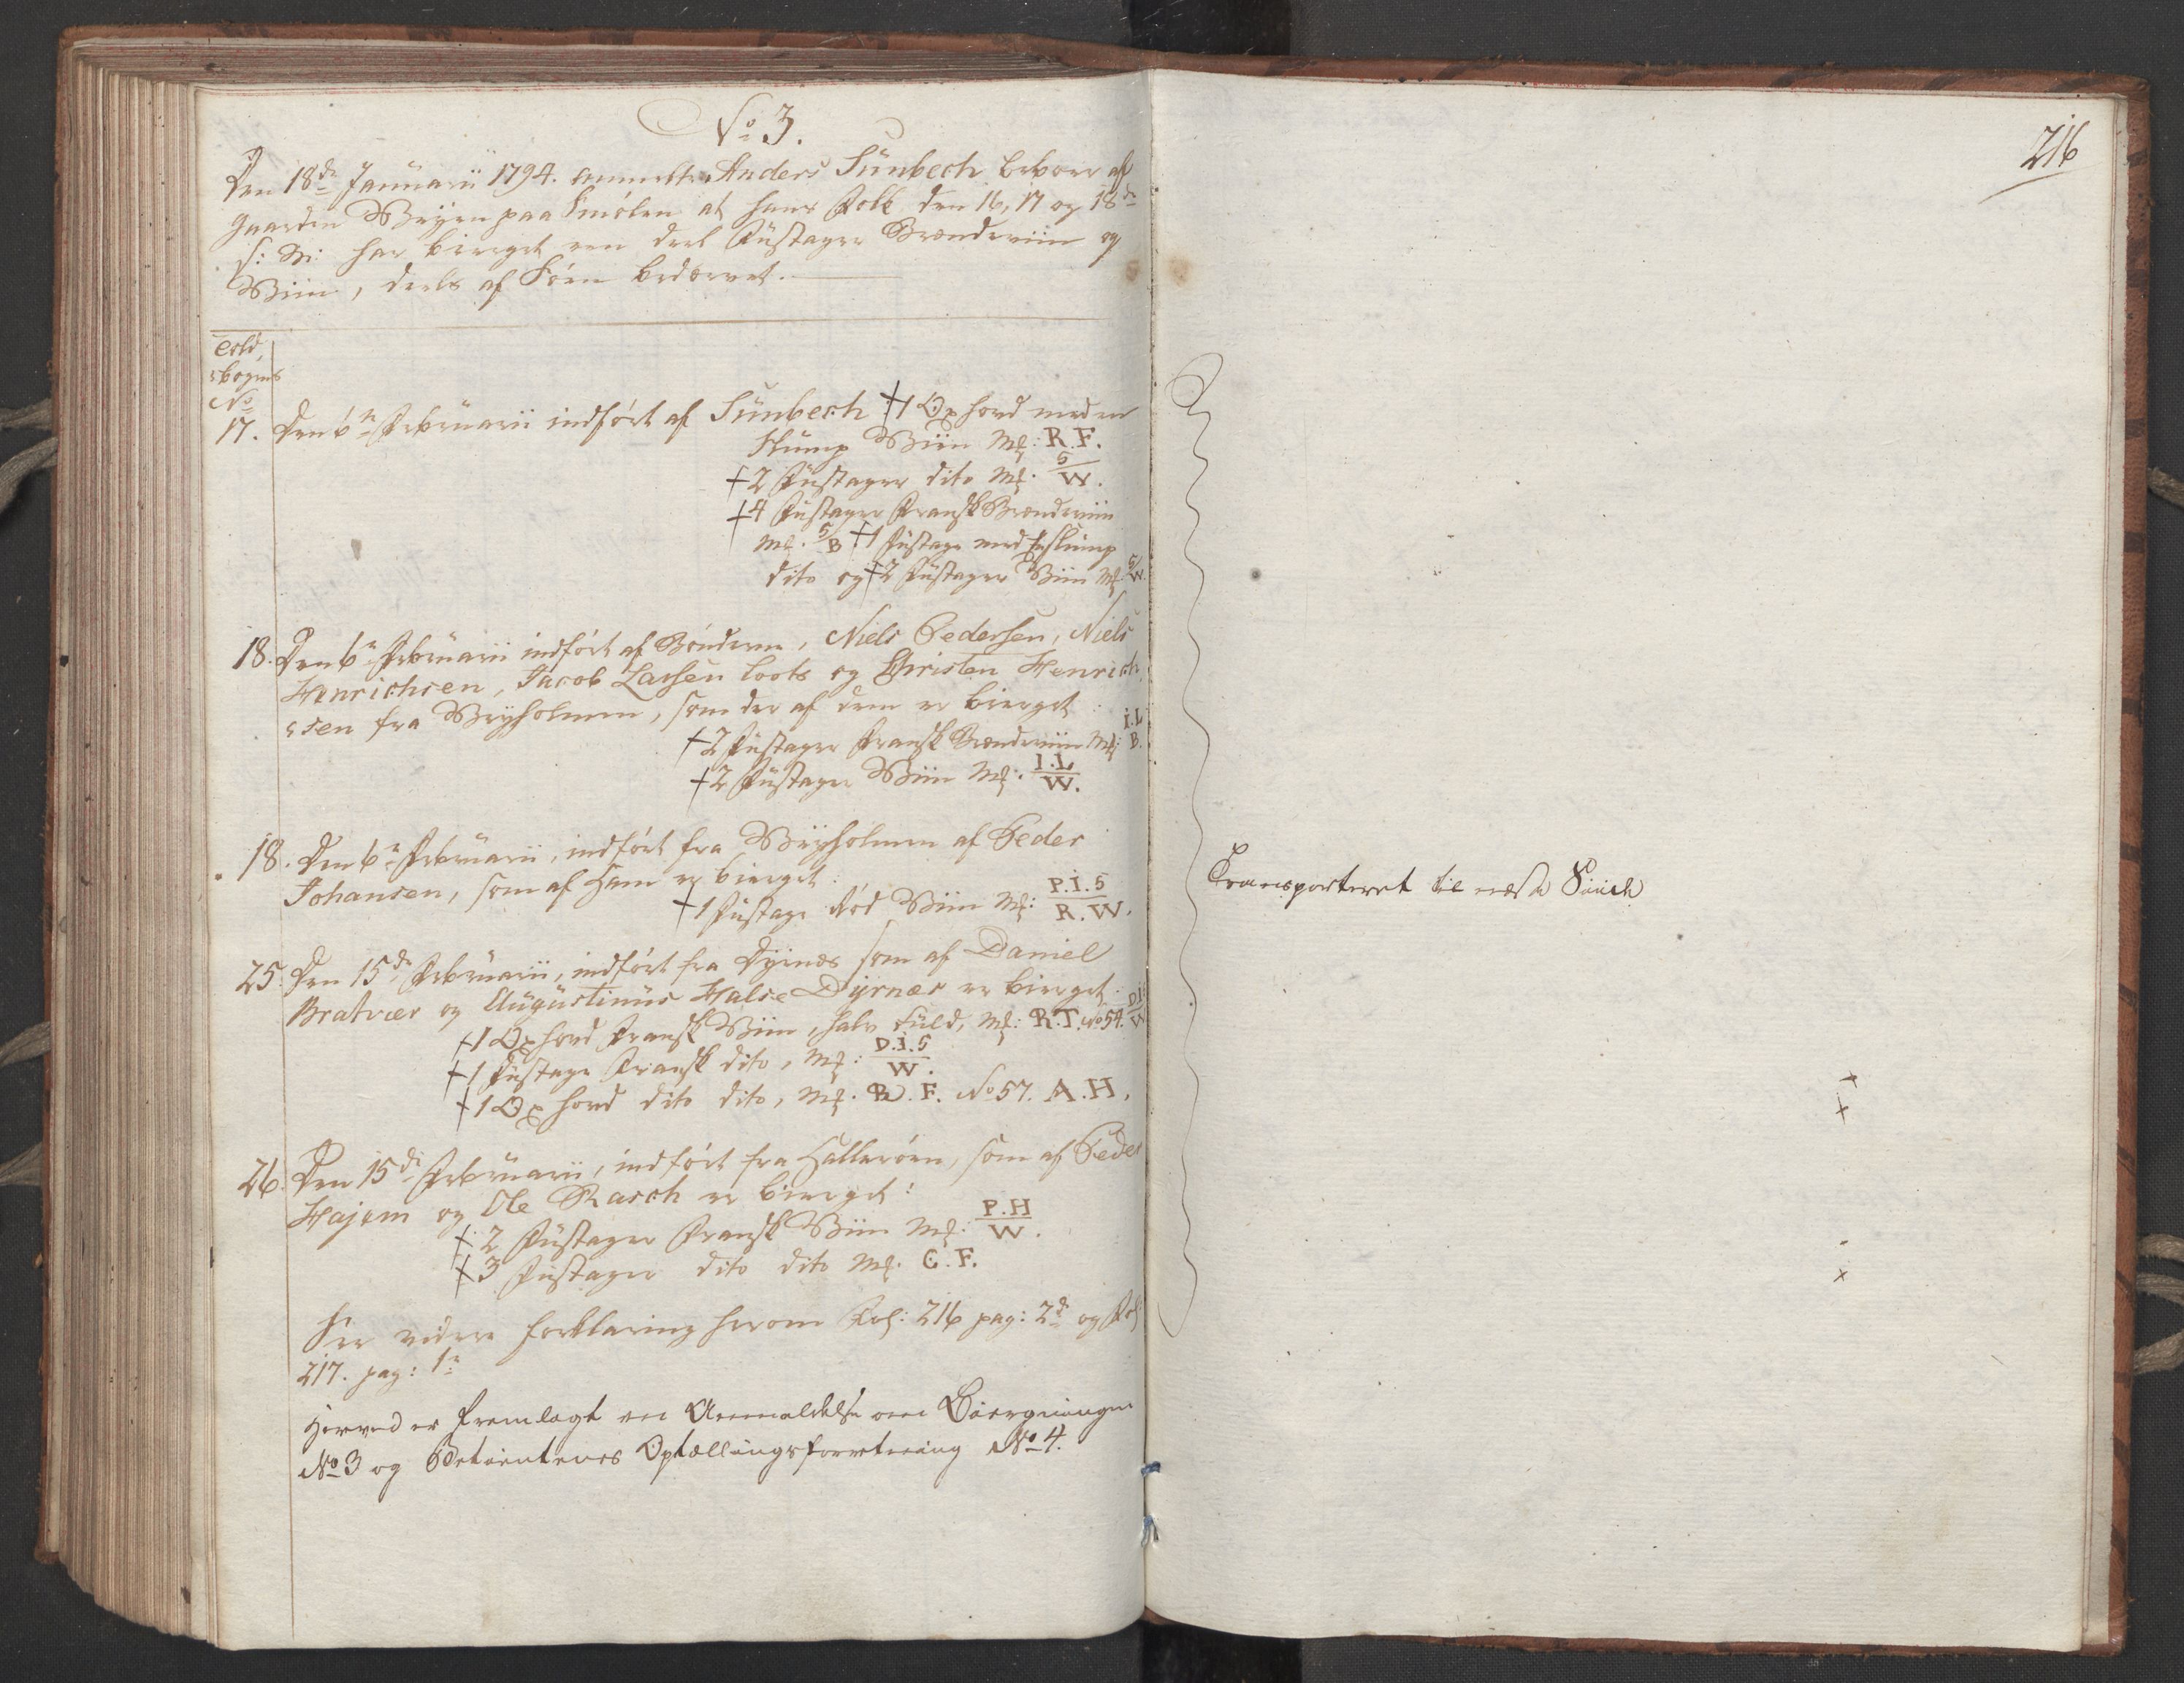 No 3.
Den 18de Januarii 1794. anmeldte Anders Sünbech beboer af
gaarden Weyen paa Smólen at hans Folk den 16, 17 og 18de
s: M: har bierget een deel Füstager Brændeviin og
Viin, deels af Sóen bedærvet.
told,
sbogens
No
17. Den 6te Februarii indfórt af Sünbech † 1 Oxhoved med en
Slump Viin Mk: R.F.
† 2 Füstager dito Mk. S/W.
† 4 Füstager Fransk Brændeviin
Mk. S/B † 1 Füstage med en Slump
dito og † 2 Füstager Viin Mk S/W.
18. Den 6te Februarii indfórt af Bónderne, Niels Pedersen, Niels
Henrichsen, Jacob Larsen Loots og Christen Henrich
sen fra Weyholmen, som der af dem er bierget:
† 2 Füstager Fransk Brændeviin Mk: I.L/B.
† 2 Füstager Viin Mk: I.L/W.
18. Den 6te Februarii, indfórt fra Weyholmen af Peder
Johansen, som af Ham er bierget:
† 1 Füstage Ród Viin Mk: P.I.S/R.W.
25. Den 15de Februarii, indfórt fra Dyrnes som af Daniel
Bratvær og Augustinus Halse Dyrnær er bierget:
† 1 Oxhoved Fransk Viin, halv fuld, Mk: R.T. No 54. D.I/W
† 1 Füstage Fransk dito, Mk: D.I.S/W.
† 1 Oxhoved dito dito, Mk. R.F. No 57. A.H.
26. Den 15de Februarii, indfórt fra Hallaróen, som af Peder
Hajem og Ole Rasch er bierget:
† 2 Füstager Fransk Viin Mk: P.H/W.
† 3 Füstager dito dito Mk. C.F.
See videre forklaring herom Fol: 216 pag: 2de og Fol:
217. pag: 1te
Herved er fremlagt en Anmeldelse om Biergningen
No 3 og Betientenes Optællingsforretning No 4.
216
Transporteret til næste Siide